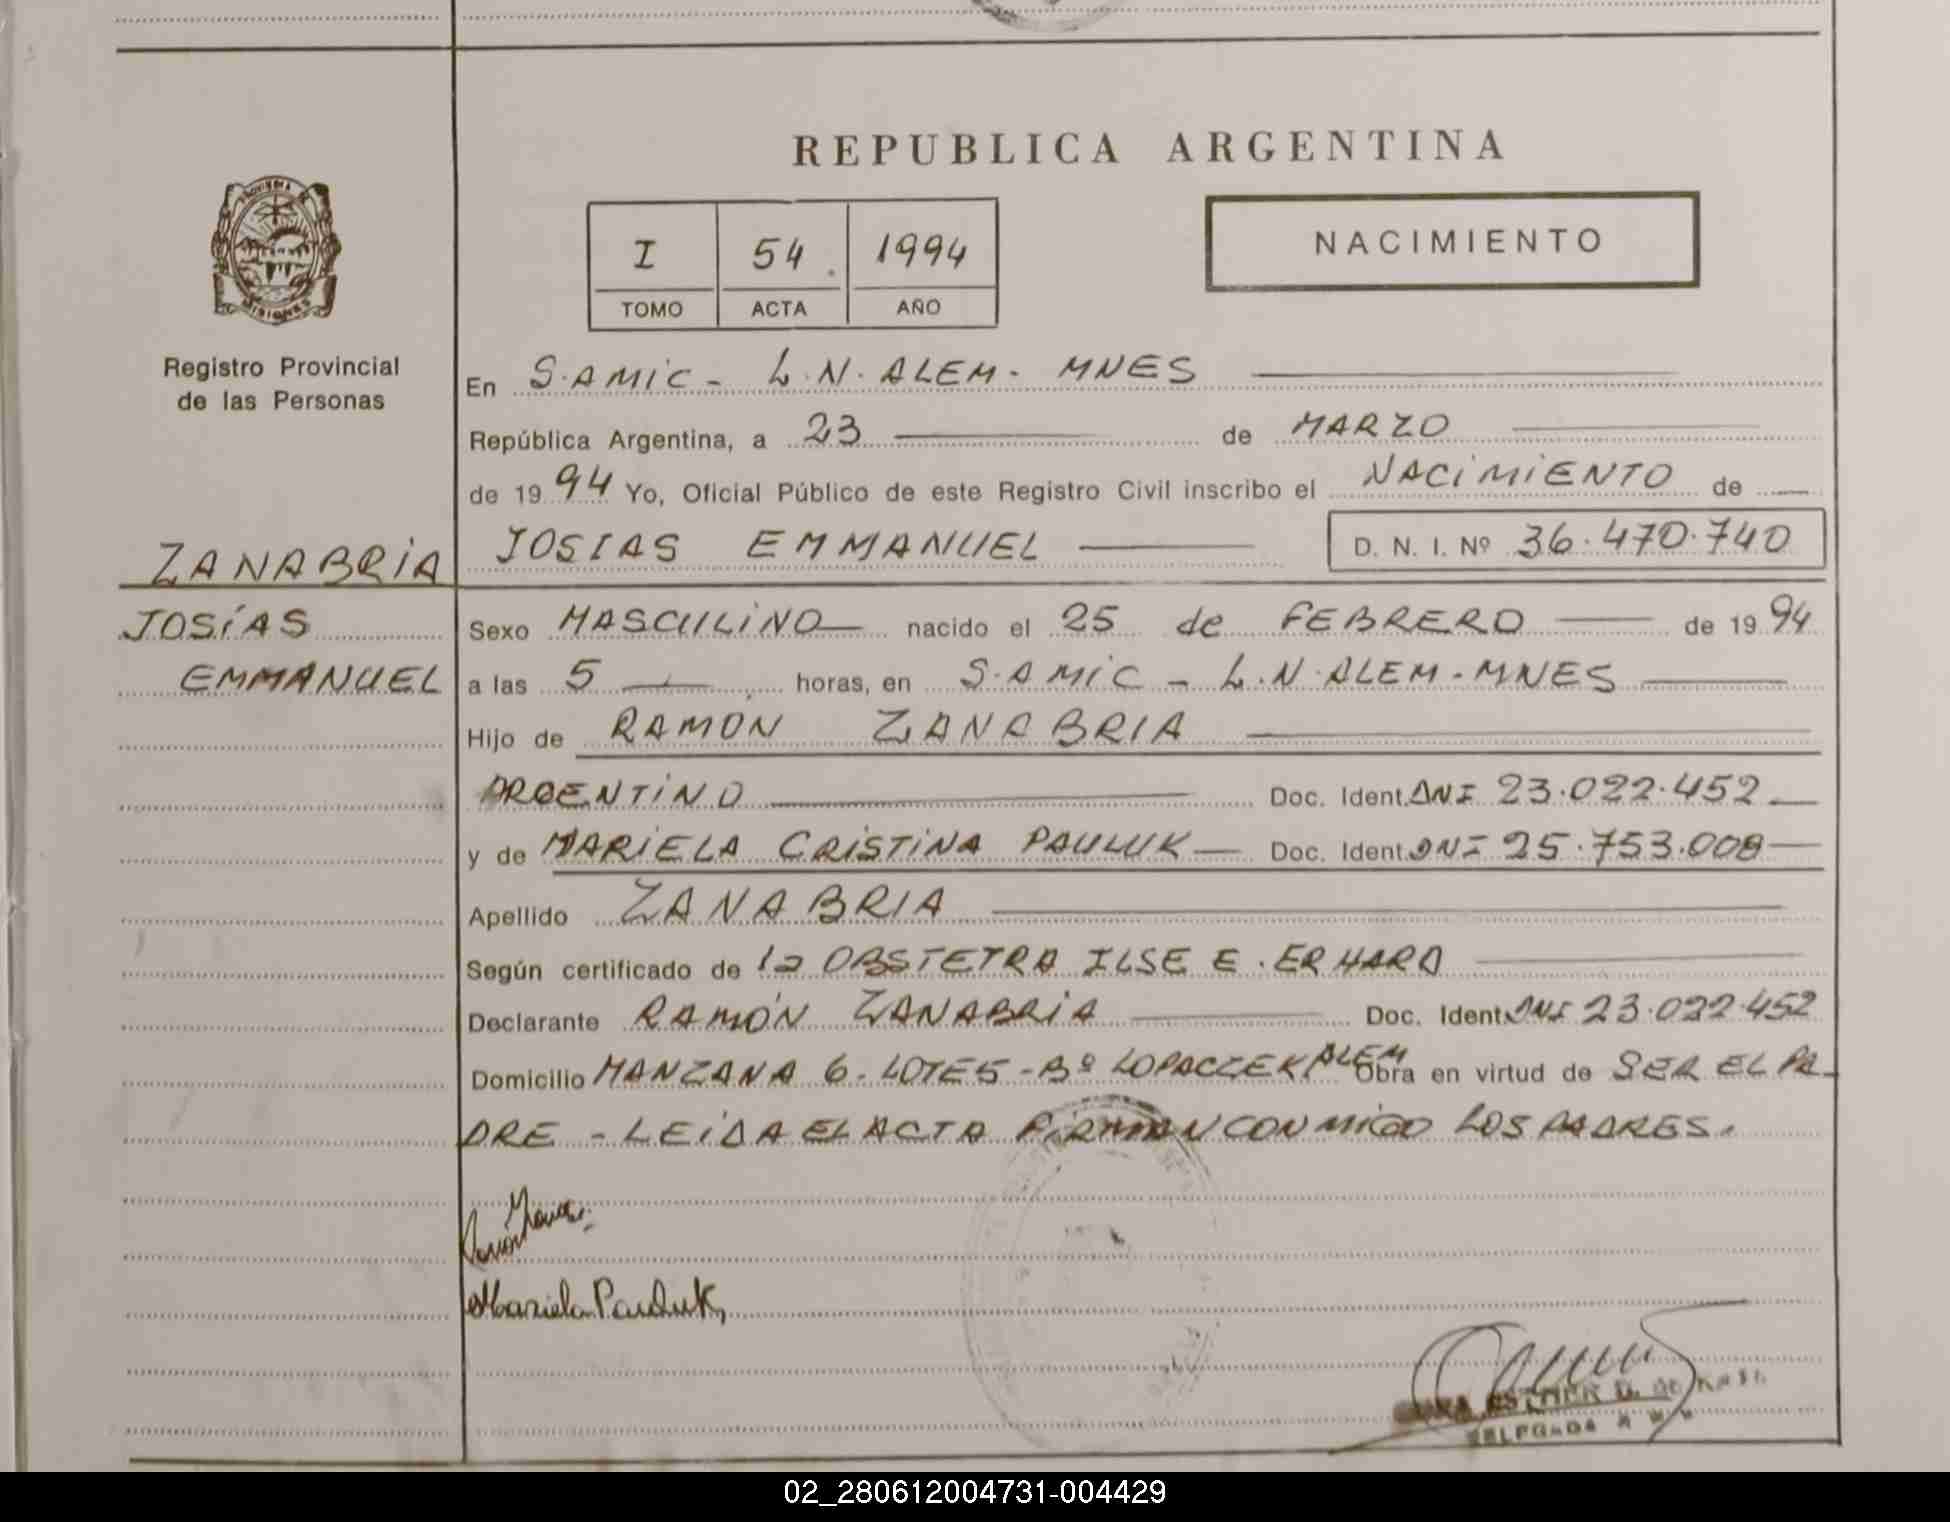 REPUBLICA ARGENTINA
PROVINCIA DE
MISIONES
I 54 1994
TOMO ACTA AÑO
NACIMIENTO
Registro Provincial
de las Personas
En S.AMIC - L.N. ALEM - MNES
República Argentina, a 23 de MARZO
de 1994 Yo, Oficial Público de este Registro Civil inscribo el NACIMIENTO de
ZANABRIA JOSIAS EMMANUEL D. N. I. Nº 36.470.740
JOSÍAS Sexo MASCULINO nacido el 25 de FEBRERO de 1994
EMMANUEL a las 5 horas, en S.AMIC - L.N. ALEM - MNES
Hijo de RAMÓN ZANABRIA
ARGENTINO Doc. Ident. DNI 23.022.452
y de MARIELA CRISTINA PAULUK Doc. Ident. DNI 25.753.008
Apellido ZANABRIA
Según certificado de la OBSTETRA ILSE E. ERHARD
Declarante RAMÓN ZANABRIA Doc. Ident. DNI 23.022.452
Domicilio MANZANA 6 - LOTE 5 - Bº LOPACZEK ALEM Obra en virtud de SER EL PA-
DRE - LEIDA EL ACTA FIRMAN CONMIGO LOS PADRES.
Mariela Pauluk
ESTHER D. de
DELEGADA
02_280612004731-004429